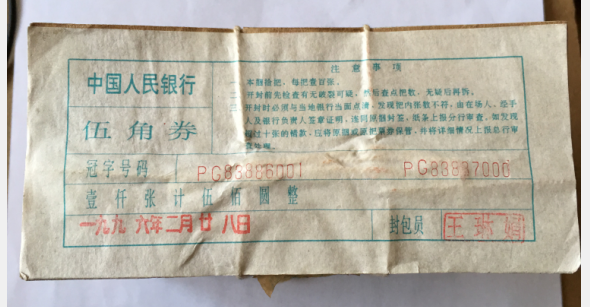 中国人民银行
伍角券
注意事项
一 本额捡把，每把壹百张。
二 开封前先检查有无破裂可疑，然后查点把数，无疑后再拆。
三 开封时必须与当地银行当面点清，发现把内张数不符，由在场人、经手
人及银行负责人签章证明，连同原捆封签，纸条上报分行审查。如发现
超过十张的错款，应将原捆或原把票券保管，并将详细情况上报总行审
冠字号码 PG83886001 PG83887000
壹仟张计伍佰圆整
一九九六年二月廿八日
封包员 王